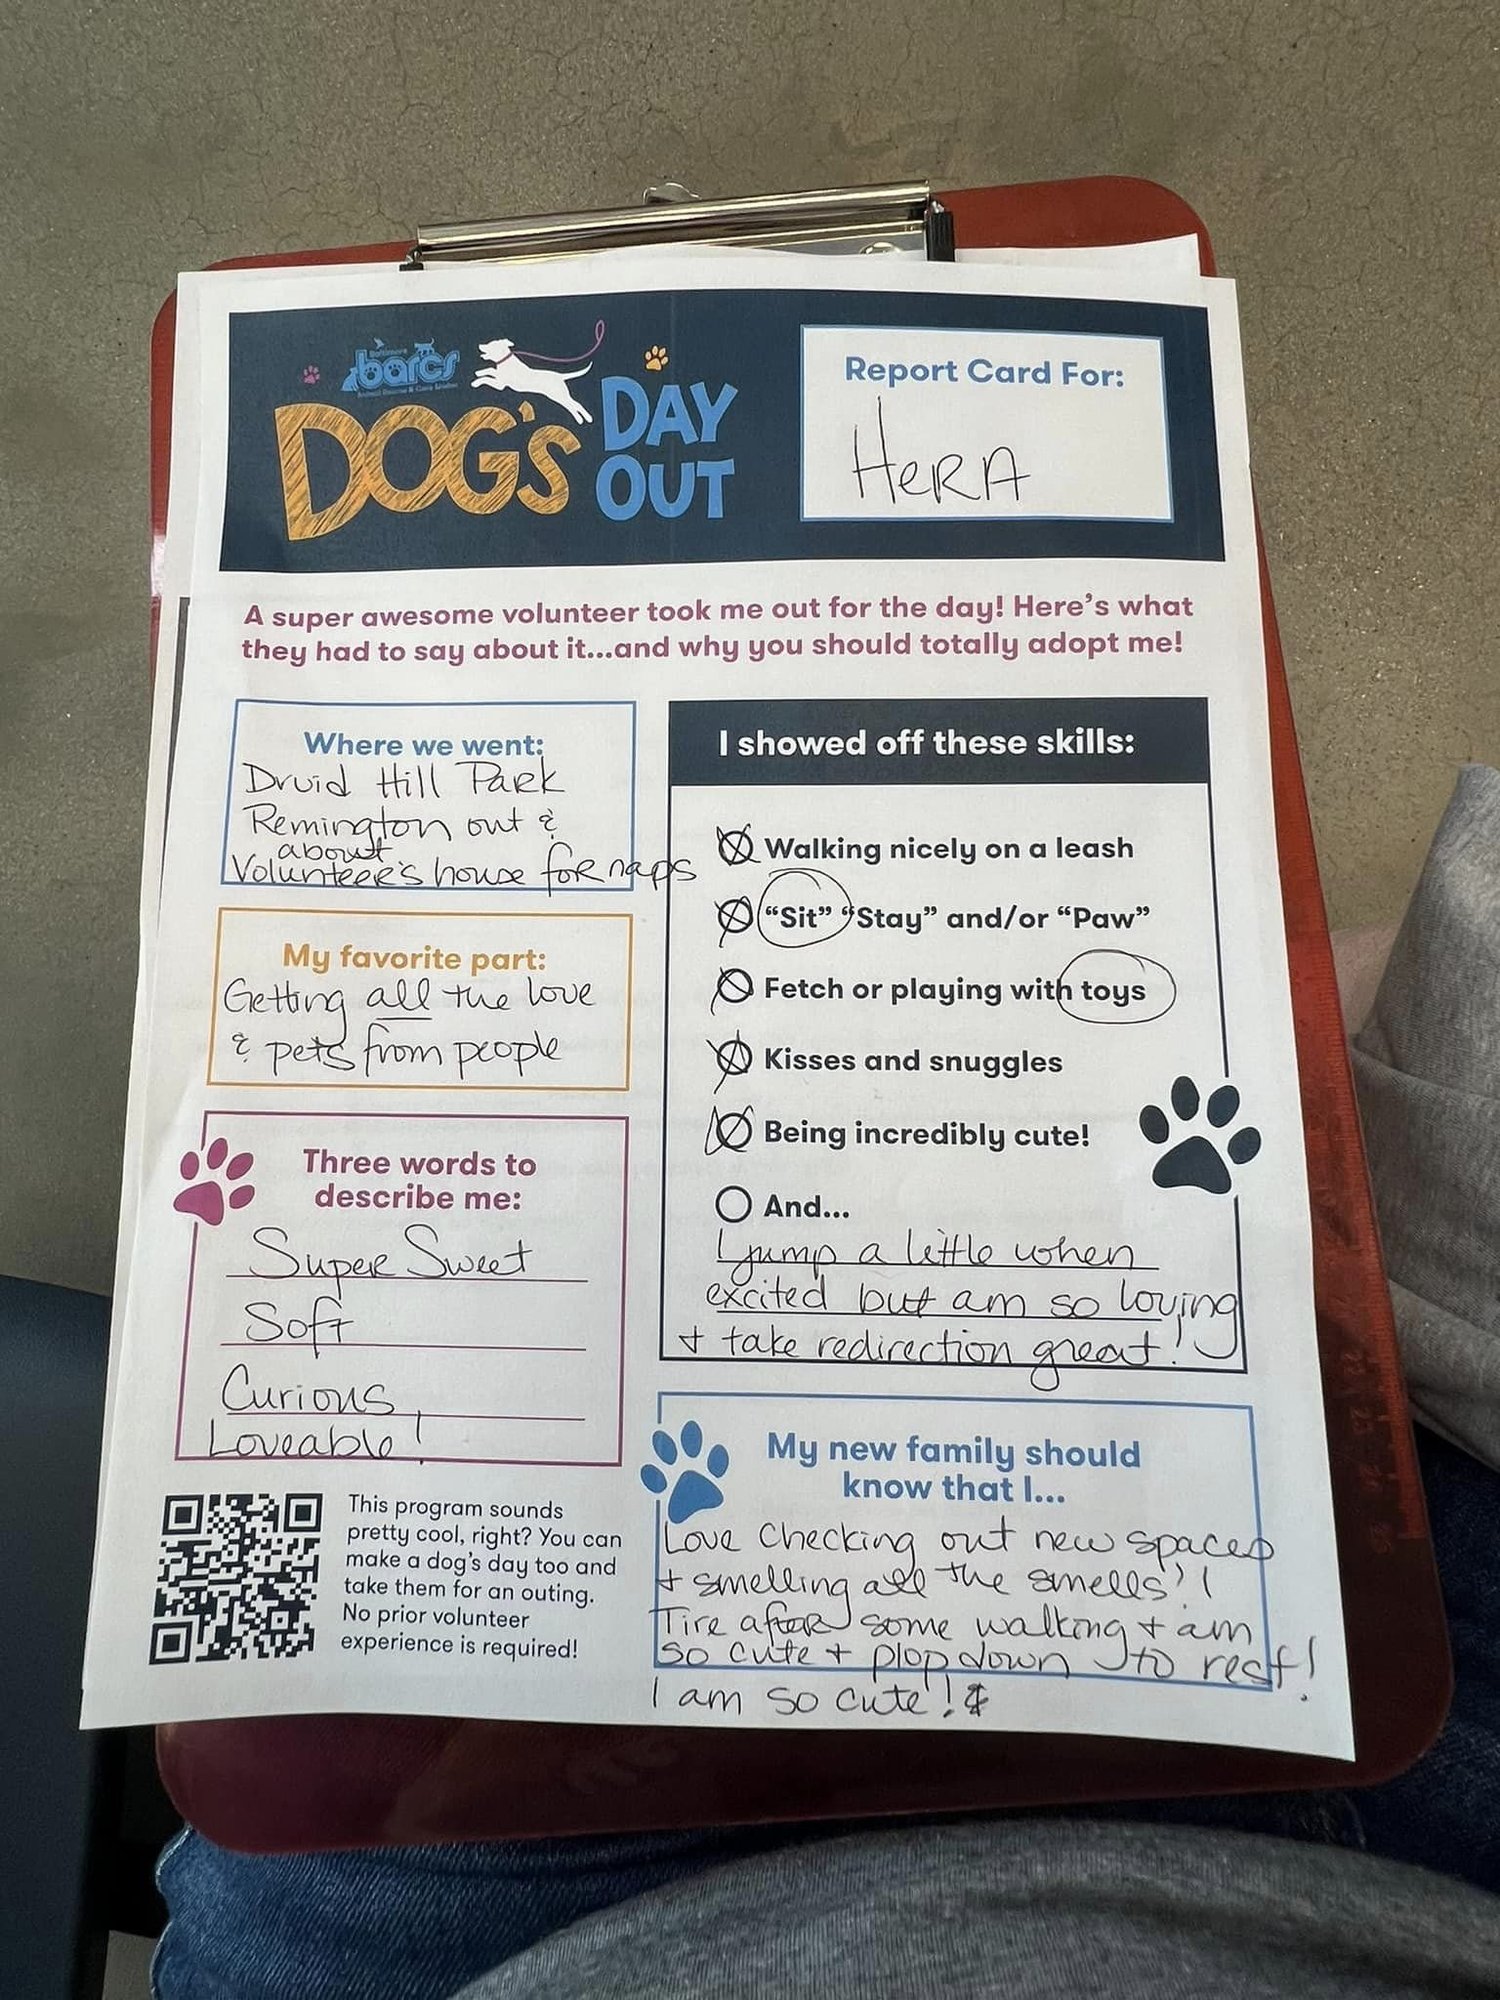 Baltimore
barcs
DOG'S DAY OUT
Report Card For:
HeRA
A super awesome volunteer took me out for the day! Here's what
they had to say about it...and why you should totally adopt me!
Where we went:
Druid Hill Park
Remington out &
about
Volunteer's house for naps
My favorite part:
Getting all the love
& pets from people
Three words to
describe me:
Super Sweet
Soft
Curious,
Loveable!
I showed off these skills:
Walking nicely on a leash
"Sit" "Stay" and/or "Paw"
Fetch or playing with toys
Kisses and snuggles
Being incredibly cute!
And...
I jump a little when
excited but am so loving
+ take redirection great!
My new family should
know that I...
Love checking out new spaces
+ smelling all the smells!!
Tire after some walking + am
so cute + plop down to rest!
I am so cute!
This program sounds
pretty cool, right? You can
make a dog's day too and
take them for an outing.
No prior volunteer
experience is required!